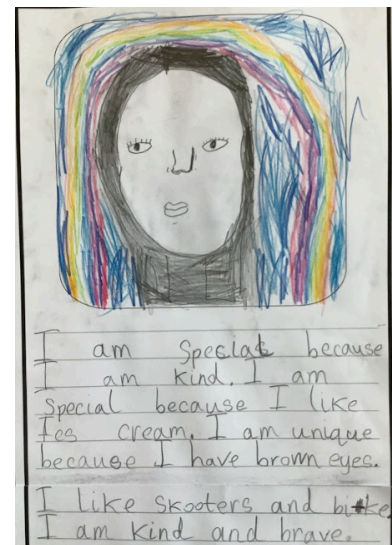 I am Special because
I am kind. I am
Special because I like
Ies cream. I am unique
because I have brown eyes.
I like skooters and bike
I am kind and brave.